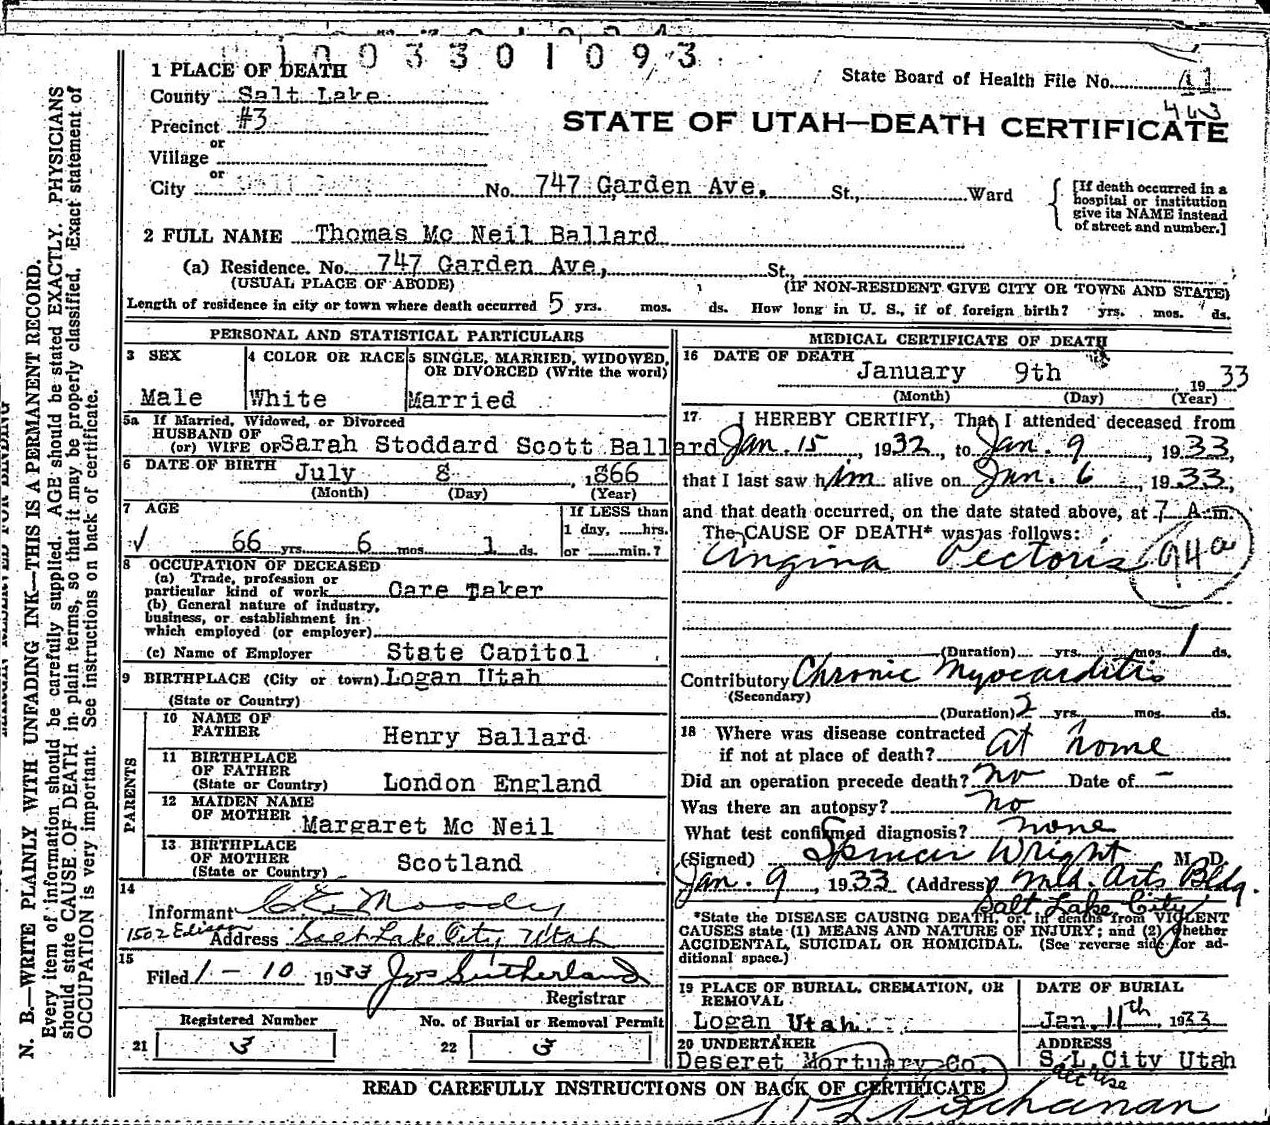 1003301093
1 PLACE OF DEATH
State Board of Health File No. 41
443
County Salt Lake
Precinct #3
STATE OF UTAH—DEATH CERTIFICATE
or
Village
or
City Salt Lake No. 747 Garden Ave. St., Ward
[If death occurred in a
hospital or institution
give its NAME instead
of street and number.]
2 FULL NAME Thomas Mc Neil Ballard
(a) Residence. No. 747 Garden Ave, St.,
(USUAL PLACE OF ABODE) (IF NON-RESIDENT GIVE CITY OR TOWN AND STATE)
Length of residence in city or town where death occurred 5 yrs. mos. ds. How long in U. S., if of foreign birth? yrs. mos. ds.
PERSONAL AND STATISTICAL PARTICULARS
3 SEX
Male
4 COLOR OR RACE
White
5 SINGLE, MARRIED, WIDOWED,
OR DIVORCED (Write the word)
Married
5a If Married, Widowed, or Divorced
HUSBAND OF
(or) WIFE OF Sarah Stoddard Scott Ballard
6 DATE OF BIRTH July 8, 1866
(Month) (Day) (Year)
7 AGE
√ 66 yrs. 6 mos. 1 ds.
If LESS than
1 day, hrs.
or min.?
8 OCCUPATION OF DECEASED
(a) Trade, profession or
particular kind of work Care Taker
(b) General nature of industry,
business, or establishment in
which employed (or employer)
(c) Name of Employer State Capitol
9 BIRTHPLACE (City or town) Logan Utah
(State or Country)
PARENTS
10 NAME OF
FATHER Henry Ballard
11 BIRTHPLACE
OF FATHER
(State or Country) London England
12 MAIDEN NAME
OF MOTHER Margaret Mc Neil
13 BIRTHPLACE
OF MOTHER
(State or Country) Scotland
14
Informant C E Moody
1502 Edison
Address Salt Lake City Utah
15
Filed 1 - 10 1933 Jos Sutherland
Registrar
Registered Number
21 3
No. of Burial or Removal Permit
22 3
MEDICAL CERTIFICATE OF DEATH
16 DATE OF DEATH
January 9th 1933
(Month) (Day) (Year)
17 I HEREBY CERTIFY, That I attended deceased from
Jan. 15, 1932, to Jan. 9, 1933,
that I last saw him alive on Jan. 6, 1933,
and that death occurred, on the date stated above, at 7 A. m.
The CAUSE OF DEATH* was as follows:
Angina Pectoris 94a
(Duration) yrs. mos. 1 ds.
Contributory Chronic Myocarditis
(Secondary)
(Duration) 2 yrs. mos. ds.
18 Where was disease contracted
if not at place of death? At home
Did an operation precede death? no Date of -
Was there an autopsy? no
What test confirmed diagnosis? none
(Signed) Spencer Wright M. D.
Jan. 9, 1933 (Address) Med. Arts Bldg.
Salt Lake City
*State the DISEASE CAUSING DEATH, or, in deaths from VIOLENT
CAUSES state (1) MEANS AND NATURE OF INJURY; and (2) whether
ACCIDENTAL, SUICIDAL OR HOMICIDAL. (See reverse side for ad-
ditional space.)
19 PLACE OF BURIAL, CREMATION, OR
REMOVAL
Logan Utah
DATE OF BURIAL
Jan. 11th, 1933
20 UNDERTAKER
Deseret Mortuary Co.
ADDRESS
S L City Utah
READ CAREFULLY INSTRUCTIONS ON BACK OF CERTIFICATE
Buchanan
N. B.—WRITE PLAINLY WITH UNFADING INK—THIS IS A PERMANENT RECORD.
Every item of information should be carefully supplied. AGE should be stated EXACTLY. PHYSICIANS
should state CAUSE OF DEATH in plain terms, so that it may be properly classified. Exact statement of
OCCUPATION is very important. See instructions on back of certificate.